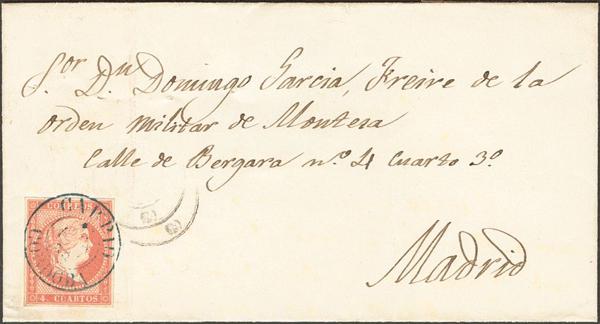 S.or D.n Domingo Garcia, Freire de la
Orden Militar de Montesa
Calle de Bergara n.o 4 Cuarto 3o
Madrid
CORREOS
4 CUARTOS
CARPIO
CORDOBA